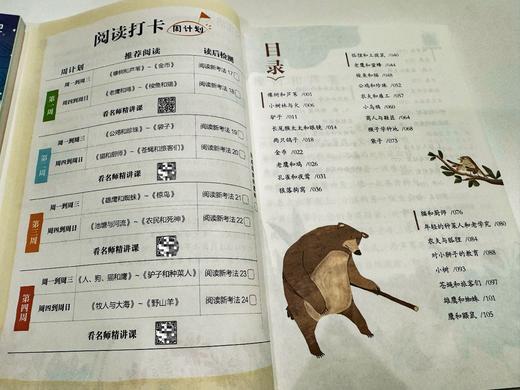 阅读打卡 周计划
周计划 推荐阅读 读后检测
第一周
周一到周三 《橡树和芦苇》~《金币》 阅读新考法 17
周四到周日 《老鹰和鸡》~《梭鱼和猫》 阅读新考法 18
看名师精讲课
第二周
周一到周三 《公鸡和珍珠》~《袋子》 阅读新考法 19
周四到周日 《猫和厨师》~《苍蝇和旅客们》 阅读新考法 20
看名师精讲课
第三周
周一到周三 《雄鹰和蜘蛛》~《椋鸟》 阅读新考法 21
周四到周日 《池塘与河流》~《农民和死神》 阅读新考法 22
看名师精讲课
第四周
周一到周三 《人、狗、猫和鹰》~《驴子和种菜人》 阅读新考法 23
周四到周日 《牧人与大海》~《野山羊》 阅读新考法 24
看名师精讲课
目录
橡树和芦苇 /003
小树林与火 /006
驴子 /011
长尾猴太太和眼镜 /014
两只鸽子 /018
金币 /022
老鹰和鸡 /026
孔雀和夜莺 /031
狼落狗窝 /036
狐狸和土拨鼠 /040
老鹰和蜜蜂 /044
梭鱼和猫
公鸡和珍珠 /052
农夫与雇工
小乌鸦
商人与鞋匠
猴子学种地
袋子 /073
猫和厨师 /076
年轻的种菜人和老学究 /080
农夫与狐狸 /084
对小狮子的教育 /088
小树 /093
苍蝇和旅客们 /097
雄鹰和蜘蛛 /101
鹰和鼹鼠 /105